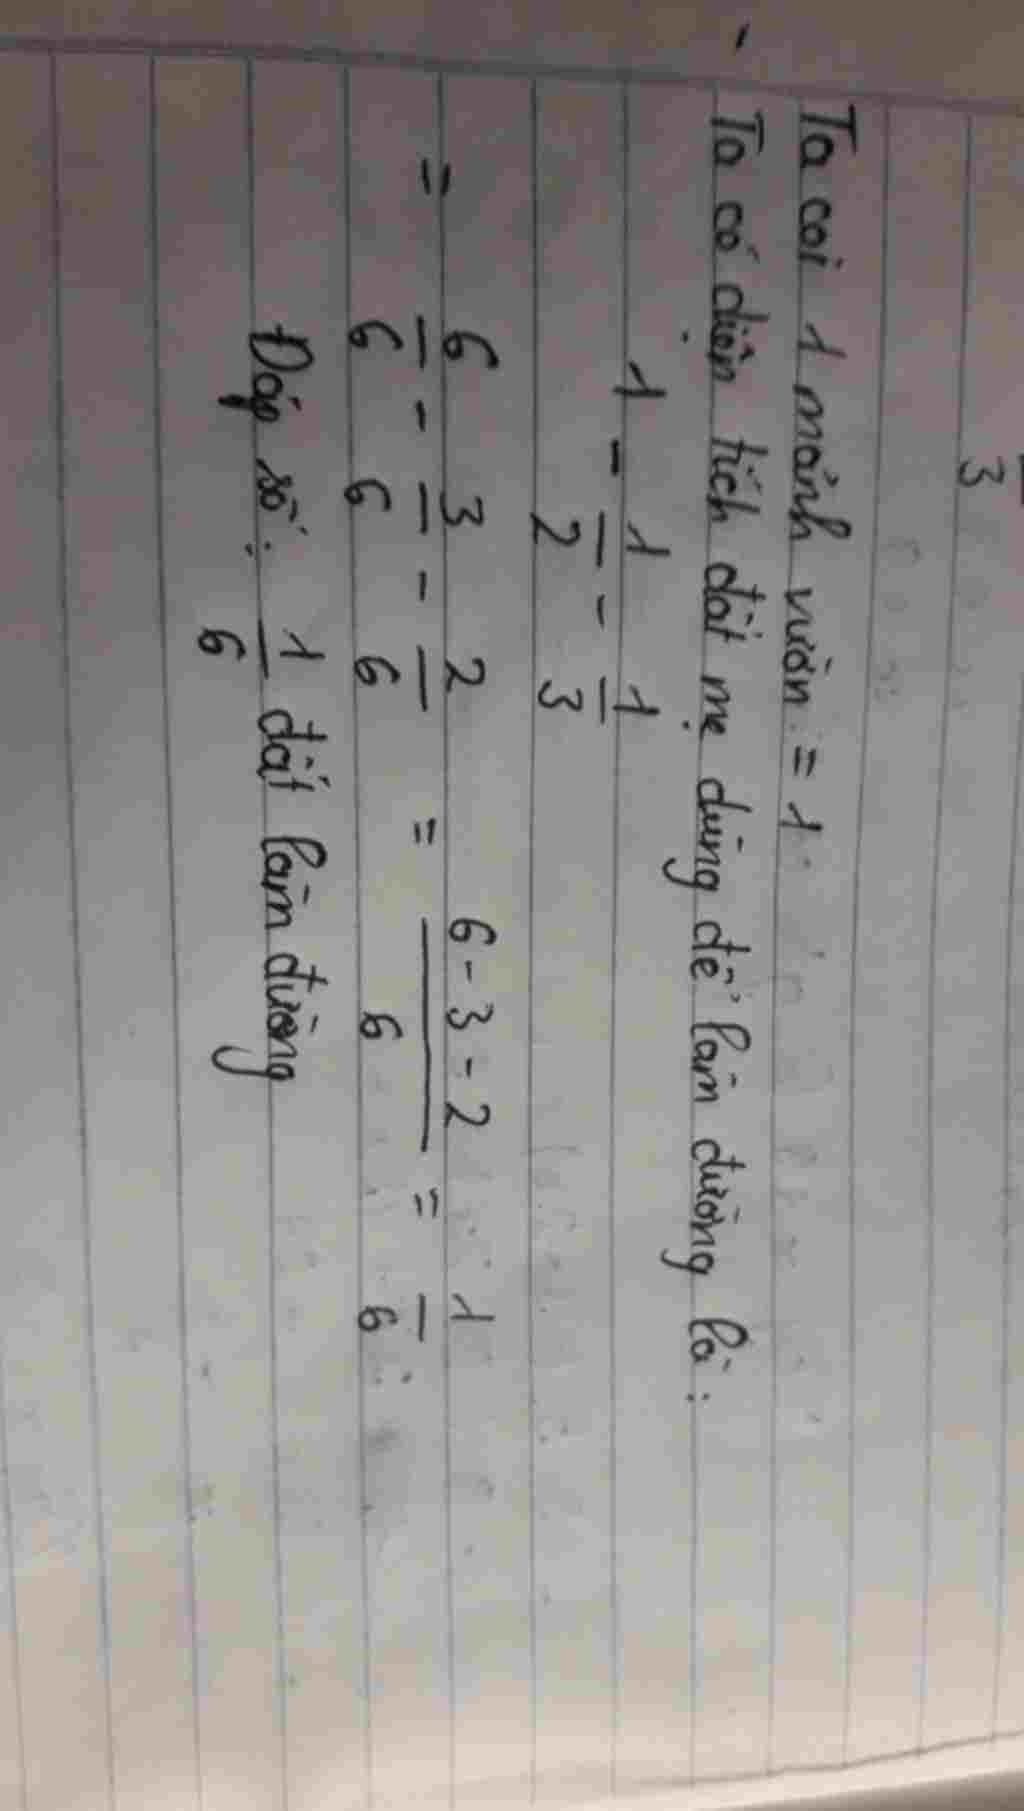 3
Ta coi 1 mảnh vườn = 1
- Ta có diện tích đất mẹ dùng để làm đường là:
1 - 1/2 - 1/3
= 6/6 - 3/6 - 2/6 = 6-3-2/6 = 1/6
Đáp số: 1/6 đất làm đường